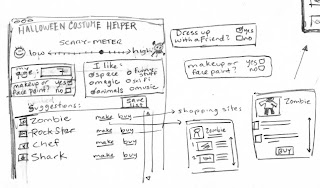 HALLOWEEN COSTUME
HELPER
SCARY-METER
low
high
age: 7
makeup or yes
face paint? no
I like:
space
funny stuff
magic
animals
music
Suggestions:
SAVE LIST
Zombie make buy
Rock Star make buy
Chef make buy
Shark make buy
Dress up yes
with a friend? no
makeup or yes
face paint? no
shopping sites
Zombie
Zombie
BUY